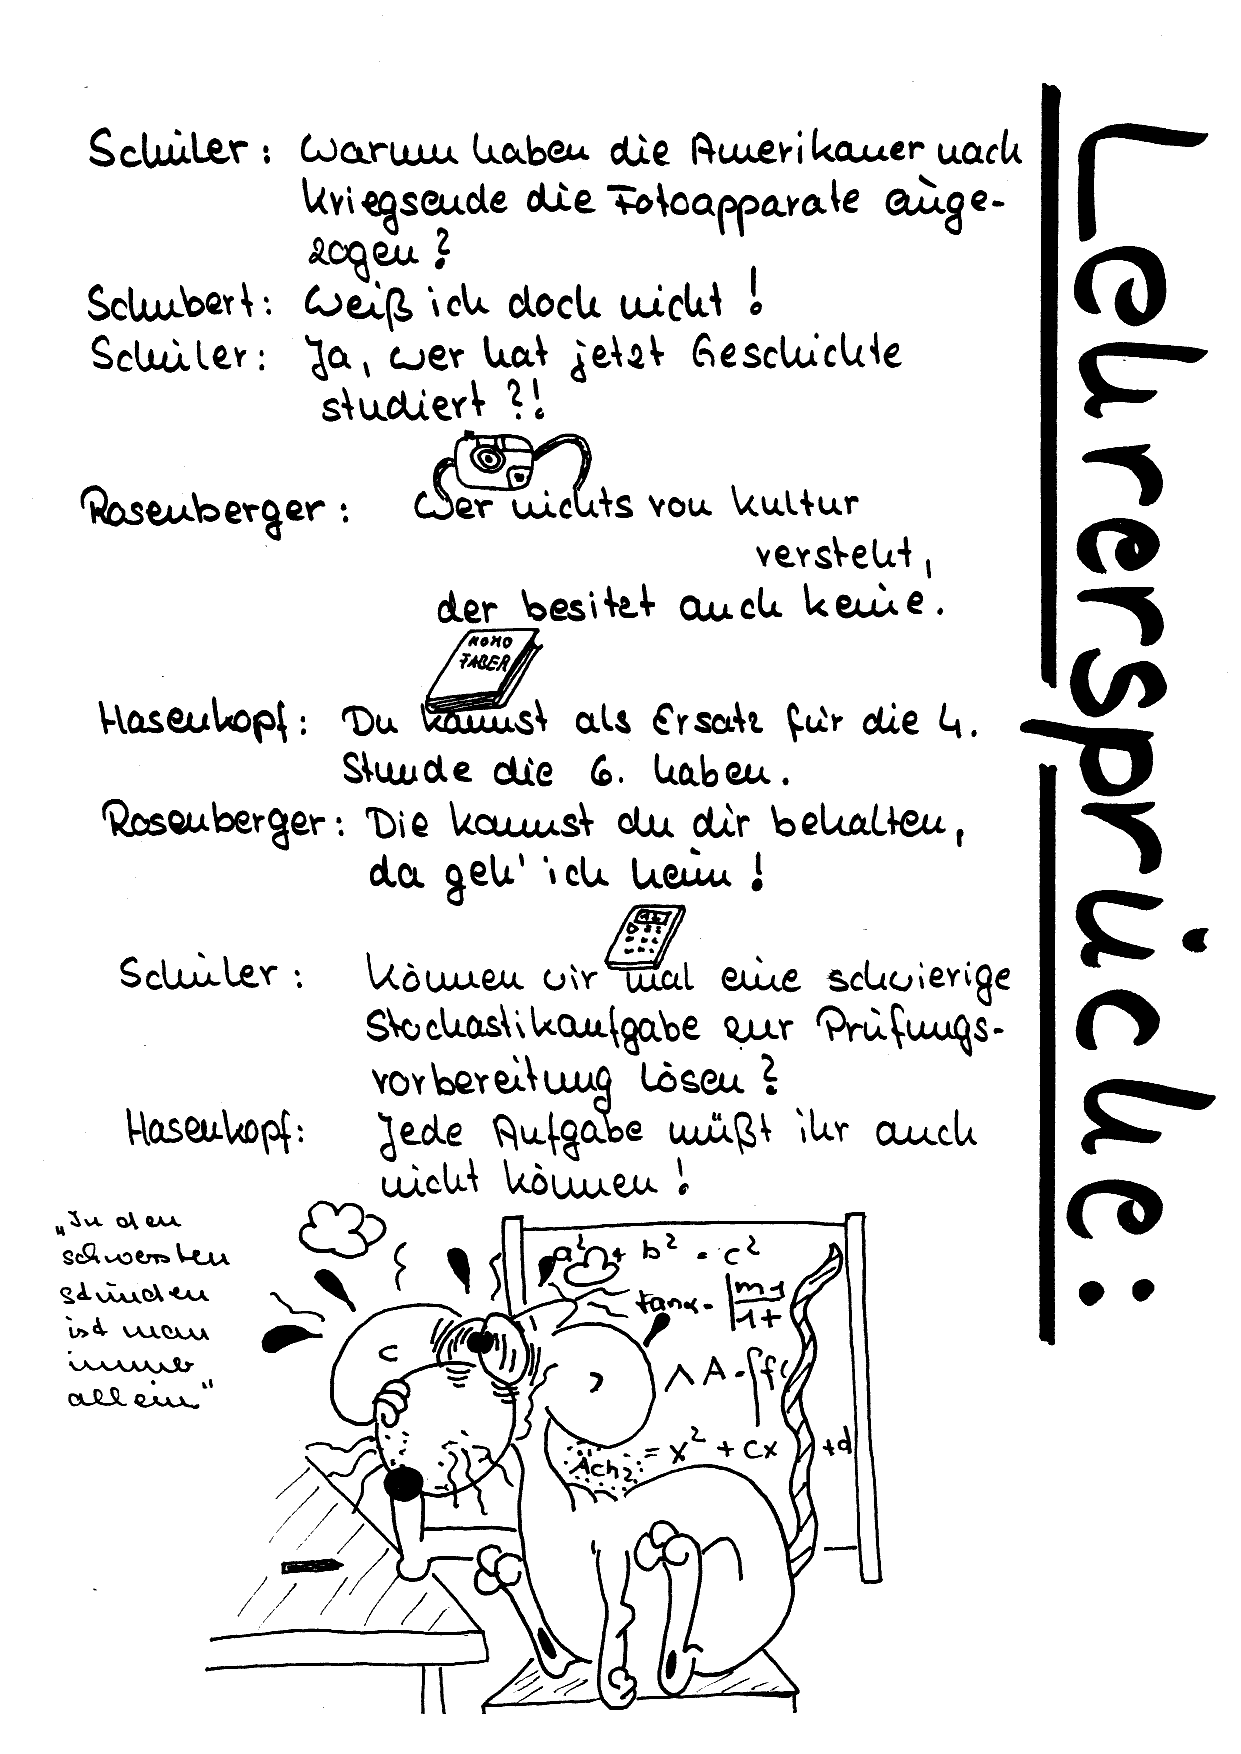 Lehrersprüche:
Schüler: Warum haben die Amerikaner nach
Kriegsende die Fotoapparate einge-
zogen?
Schubert: Weiß ich doch nicht!
Schüler: Ja, wer hat jetzt Geschichte
studiert?!
Rosenberger: Wer nichts von Kultur
versteht,
der besitzt auch keine.
HOMO
FABER
Hasenkopf: Du kannst als Ersatz für die 4.
Stunde die 6. haben.
Rosenberger: Die kannst du dir behalten,
da geh' ich heim!
Schüler: Können wir mal eine schwierige
Stochastikaufgabe zur Prüfungs-
vorbereitung lösen?
Hasenkopf: Jede Aufgabe müßt ihr auch
nicht können!
„In den
schwersten
stunden
ist man
immer
allein."
a² + b² = c²
tanα =
1+
∧ A = ∫f(
Ächz = x² + cx +d